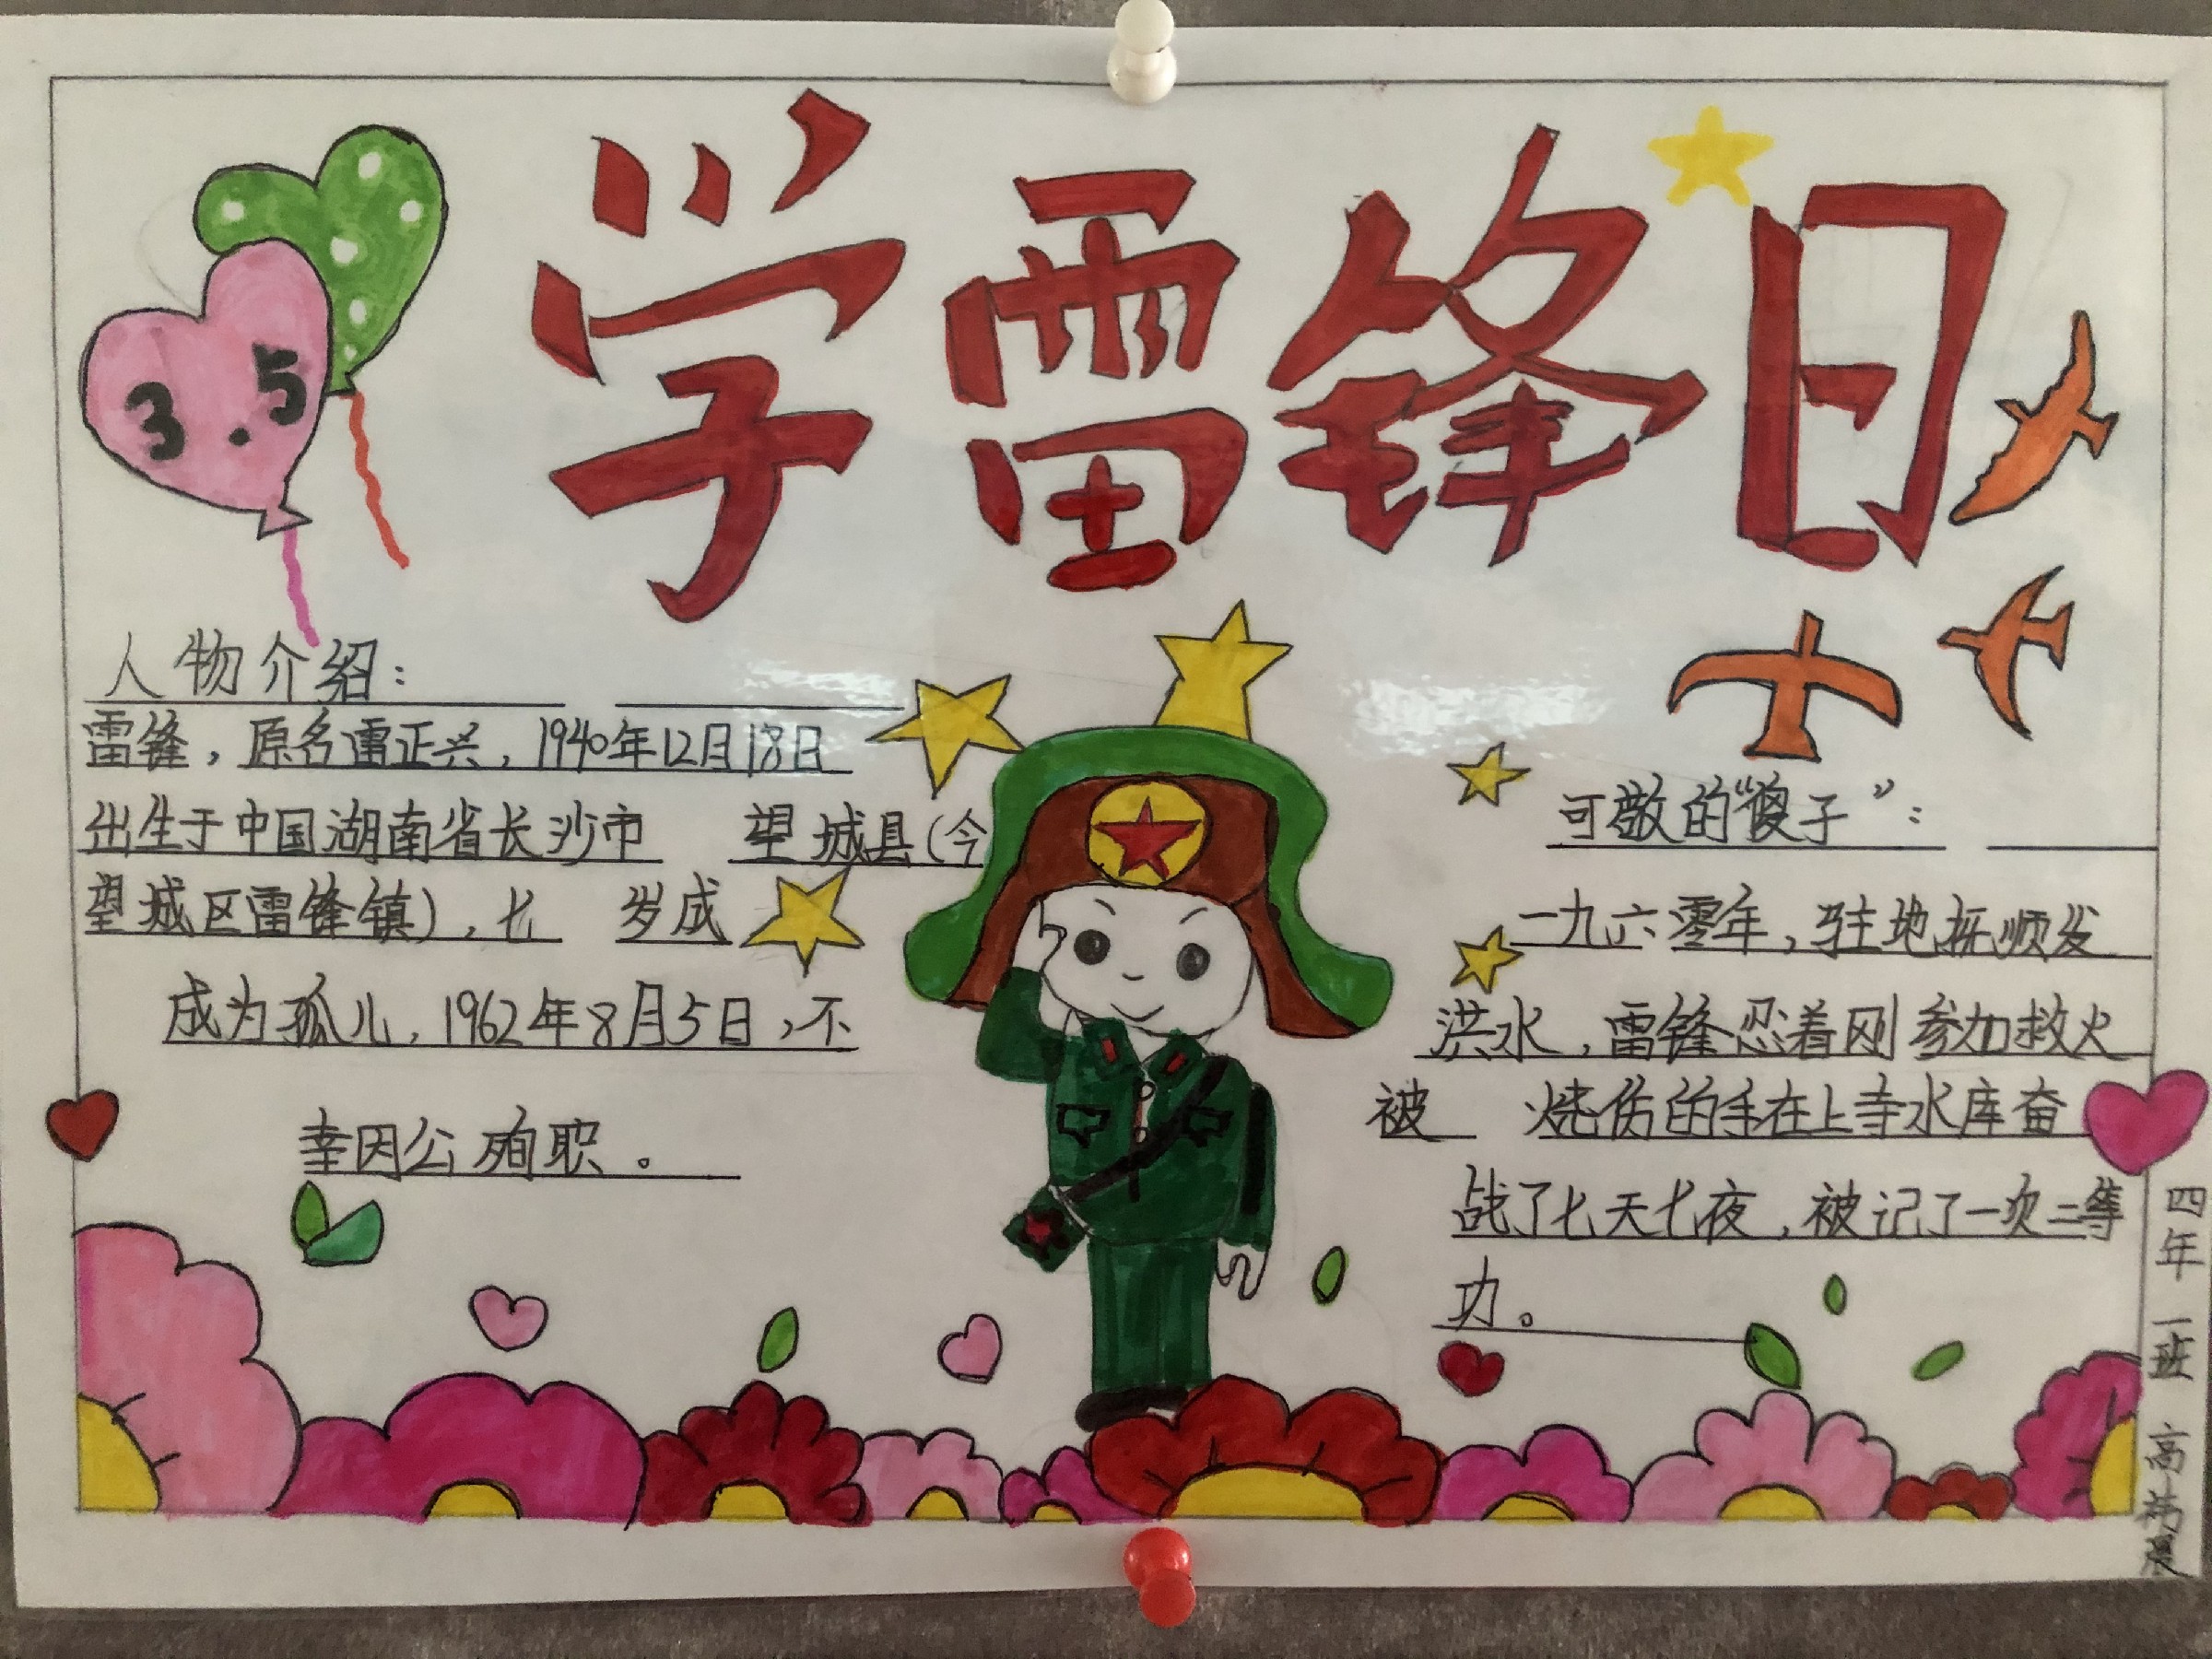 学雷锋日
3.5
人物介绍：
雷锋，原名雷正兴，1940年12月18日
出生于中国湖南省长沙市 望城县（今
望城区雷锋镇），七 岁成
成为孤儿，1962年8月5日，不
幸因公殉职。
可敬的“傻子”：
一九六零年，驻地抚顺发
洪水，雷锋忍着刚参加救火
被 烧伤的手在上寺水库奋
战了七天七夜，被记了一次二等
功。
四年一班 高